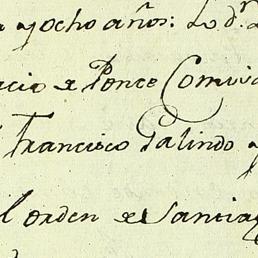 y ocho años: Lo d.r
acio de Ponce Comisa
Francisco Galindo y
l orden de Santiag